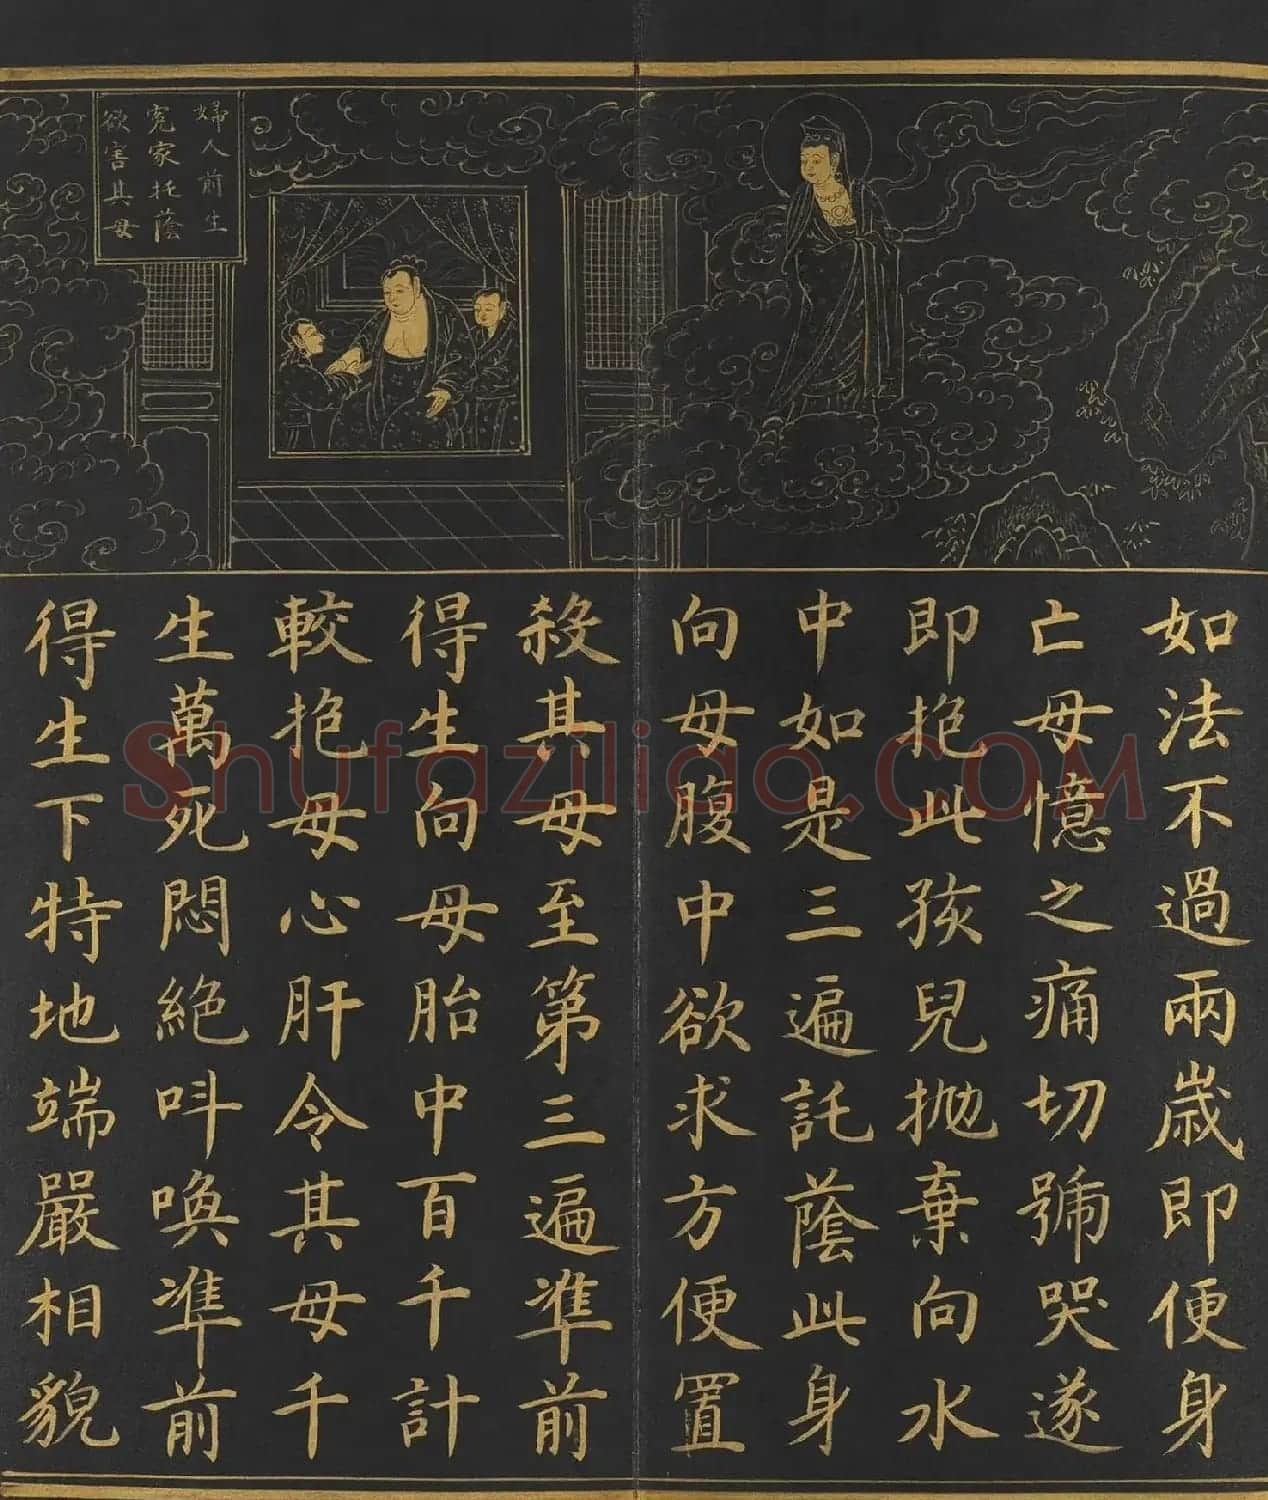 婦人前生
冤家托蔭
欲害其母
如法不過兩歲即便身
亡母憶之痛切號哭遂
即抱此孩兒拋棄向水
中如是三遍託蔭此身
向母腹中欲求方便置
殺其母至第三遍準前
得生向母胎中百千計
較抱母心肝令其母千
生萬死悶絕叫喚準前
得生下特地端嚴相貌
Shufaziliao.COM